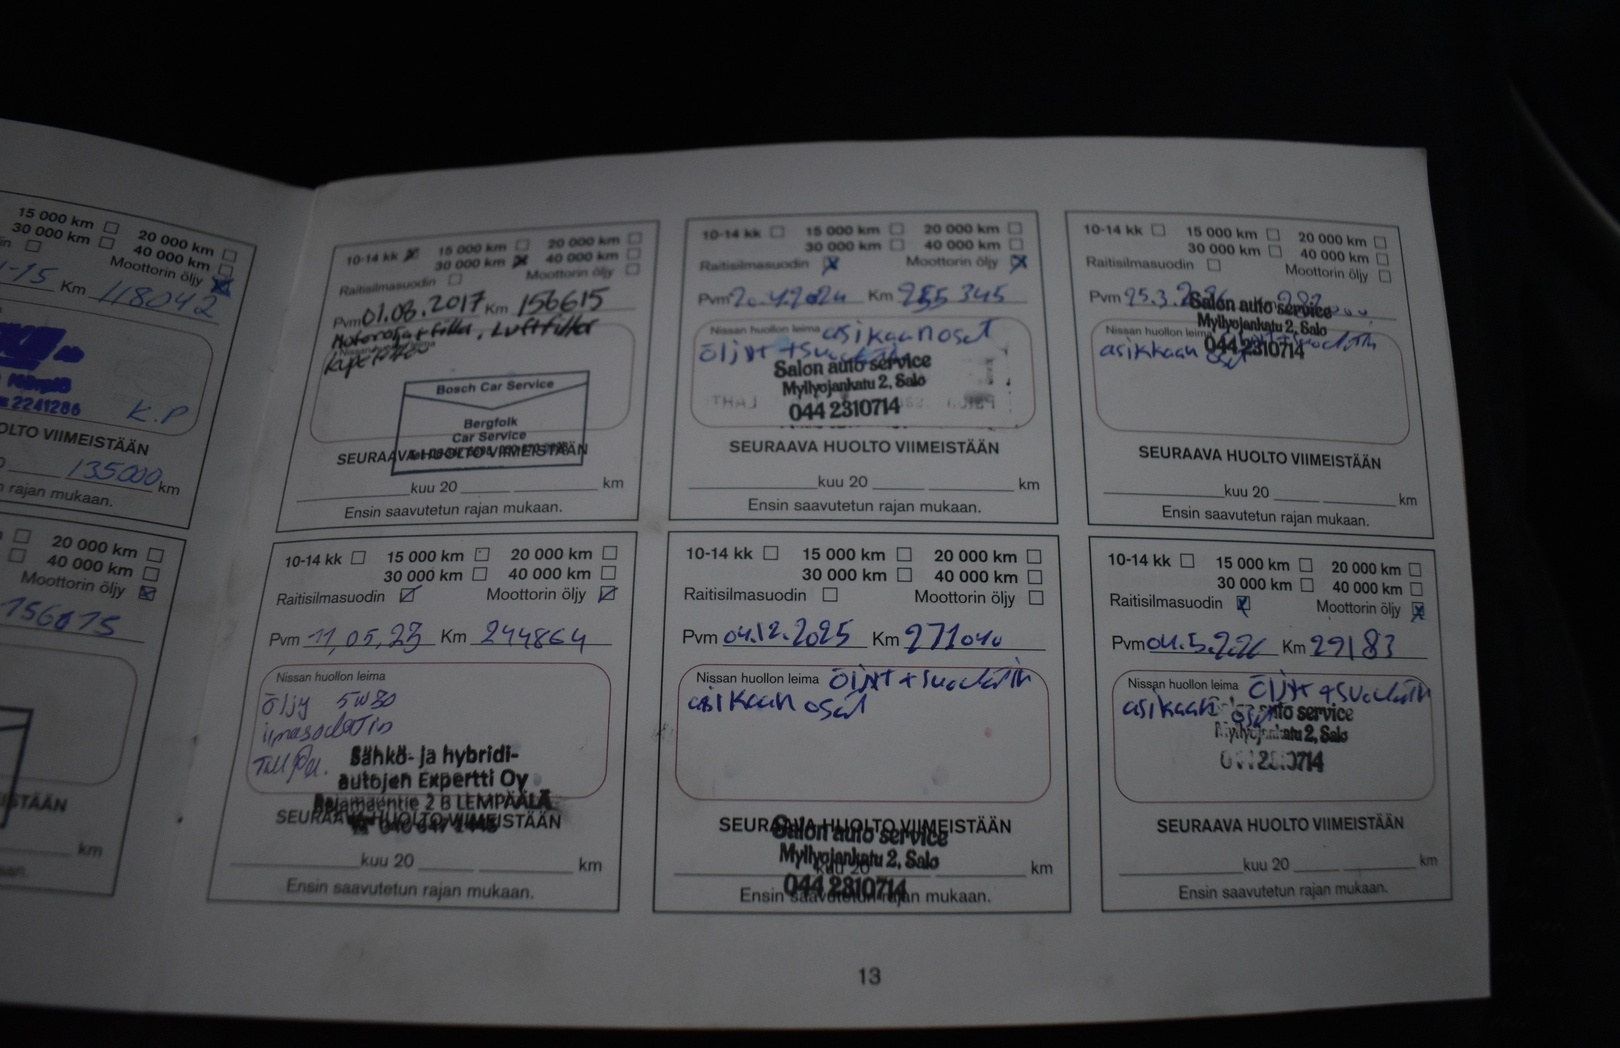 15 000 km 20 000 km
30 000 km 40 000 km
Moottorin öljy
-15 Km 118042
2241286 K.P
OLTO VIIMEISTÄÄN
135000 km
n rajan mukaan.
20 000 km
40 000 km
Moottorin öljy
156615
km
10-14 kk 15 000 km 20 000 km
30 000 km 40 000 km
Raitisilmasuodin Moottorin öljy
Pvm 01.08.2017 Km 156615
Luftfilter
Nissan huollon leima
Bosch Car Service
Bergfolk
Car Service
SEURAAVA HUOLTO VIIMEISTÄÄN
kuu 20 km
Ensin saavutetun rajan mukaan.
10-14 kk 15 000 km 20 000 km
30 000 km 40 000 km
Raitisilmasuodin Moottorin öljy
Pvm Km 255 345
Nissan huollon leima asikaan osat
öljyt +
Salon auto service
Myllyojankatu 2, Salo
044 2310714
SEURAAVA HUOLTO VIIMEISTÄÄN
kuu 20 km
Ensin saavutetun rajan mukaan.
10-14 kk 15 000 km 20 000 km
30 000 km 40 000 km
Raitisilmasuodin Moottorin öljy
Pvm 25.3.
Salon auto service
Myllyojankatu 2, Salo
Nissan huollon leima
044 2310714
asikkaan
SEURAAVA HUOLTO VIIMEISTÄÄN
kuu 20 km
Ensin saavutetun rajan mukaan.
10-14 kk 15 000 km 20 000 km
30 000 km 40 000 km
Raitisilmasuodin Moottorin öljy
Pvm 11,05,23 Km 244864
Nissan huollon leima
öljy 5W30
Sähkö- ja hybridi-
autojen Expertti Oy
2 B LEMPÄÄLÄ
SEURAAVA HUOLTO VIIMEISTÄÄN
kuu 20 km
Ensin saavutetun rajan mukaan.
10-14 kk 15 000 km 20 000 km
30 000 km 40 000 km
Raitisilmasuodin Moottorin öljy
Pvm 04.12.2025 Km 271040
Nissan huollon leima öljyt + suodatin
asikaan osat
SEURAAVA HUOLTO VIIMEISTÄÄN
Salon auto service
Myllyojankatu 2, Salo
kuu 20 km
044 2310714
Ensin saavutetun rajan mukaan.
10-14 kk 15 000 km 20 000 km
30 000 km 40 000 km
Raitisilmasuodin Moottorin öljy
Pvm Km 29183
Nissan huollon leima öljyt + suodatin
asikaan osat
auto service
Myllyojankatu 2, Salo
SEURAAVA HUOLTO VIIMEISTÄÄN
kuu 20 km
Ensin saavutetun rajan mukaan.
13